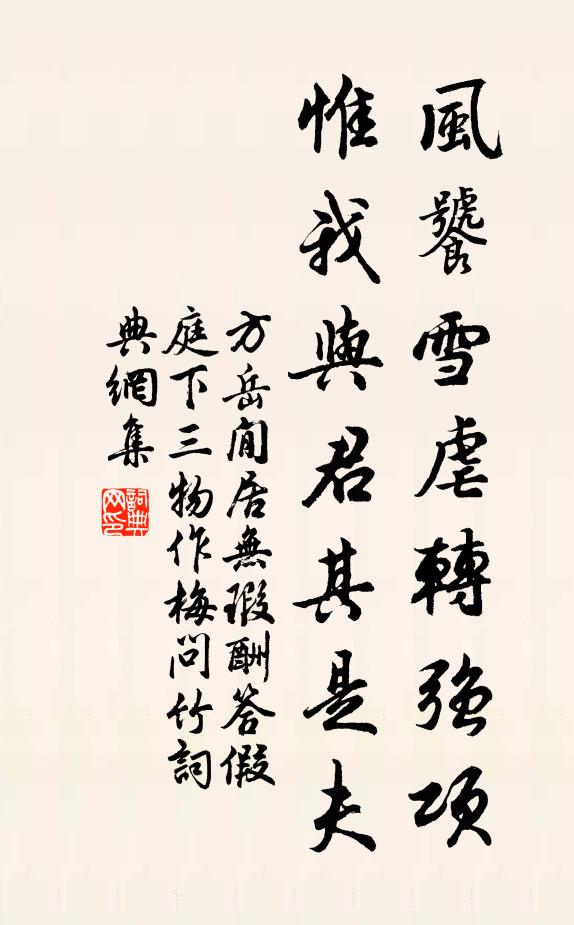 風饕雪虐轉強項
惟我與君其是夫
方岳閒居無瑕酬答假
庭下三物作梅問竹詞
典網集
詞典網印